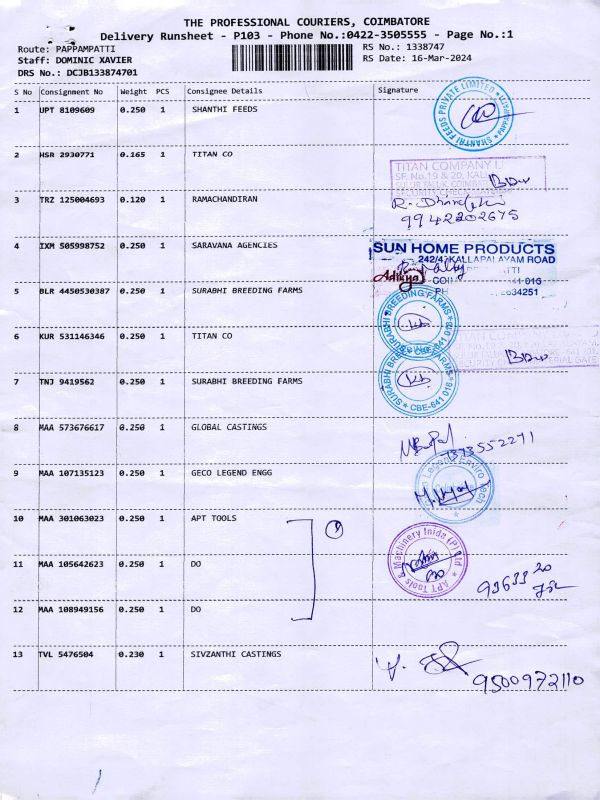 THE PROFESSIONAL COURIERS, COIMBATORE
Delivery Runsheet - P103 - Phone No.:0422-3505555 - Page No.:1
Route: PAPPAMPATTI RS No.: 1338747
Staff: DOMINIC XAVIER RS Date: 16-Mar-2024
DRS No.: DCJB133874701
S No Consignment No Weight PCS Consignee Details Signature
1 UPT 8109609 0.250 1 SHANTHI FEEDS
SHANTHI FEEDS PRIVATE LIMITED
2 HSR 2930771 0.165 1 TITAN CO
TITAN COMPANY
SF. No.19 & 20,
3 TRZ 125004693 0.120 1 RAMACHANDIRAN
9942202675
4 IXM 505998752 0.250 1 SARAVANA AGENCIES
SUN HOME PRODUCTS
KALLAPALAYAM ROAD
Aditya
5 BLR 4450530387 0.250 1 SURABHI BREEDING FARMS
SURABHI BREEDING FARMS
CBE-641 016
6 KUR 531146346 0.250 1 TITAN CO
7 TNJ 9419562 0.250 1 SURABHI BREEDING FARMS
CBE-641 016
8 MAA 573676617 0.250 1 GLOBAL CASTINGS
9 MAA 107135123 0.250 1 GECO LEGEND ENGG
10 MAA 301063023 0.250 1 APT TOOLS
APT Tools & Machinery India (P) Ltd
11 MAA 105642623 0.250 1 DO
12 MAA 108949156 0.250 1 DO
13 TVL 5476504 0.230 1 SIVZANTHI CASTINGS
9500972110